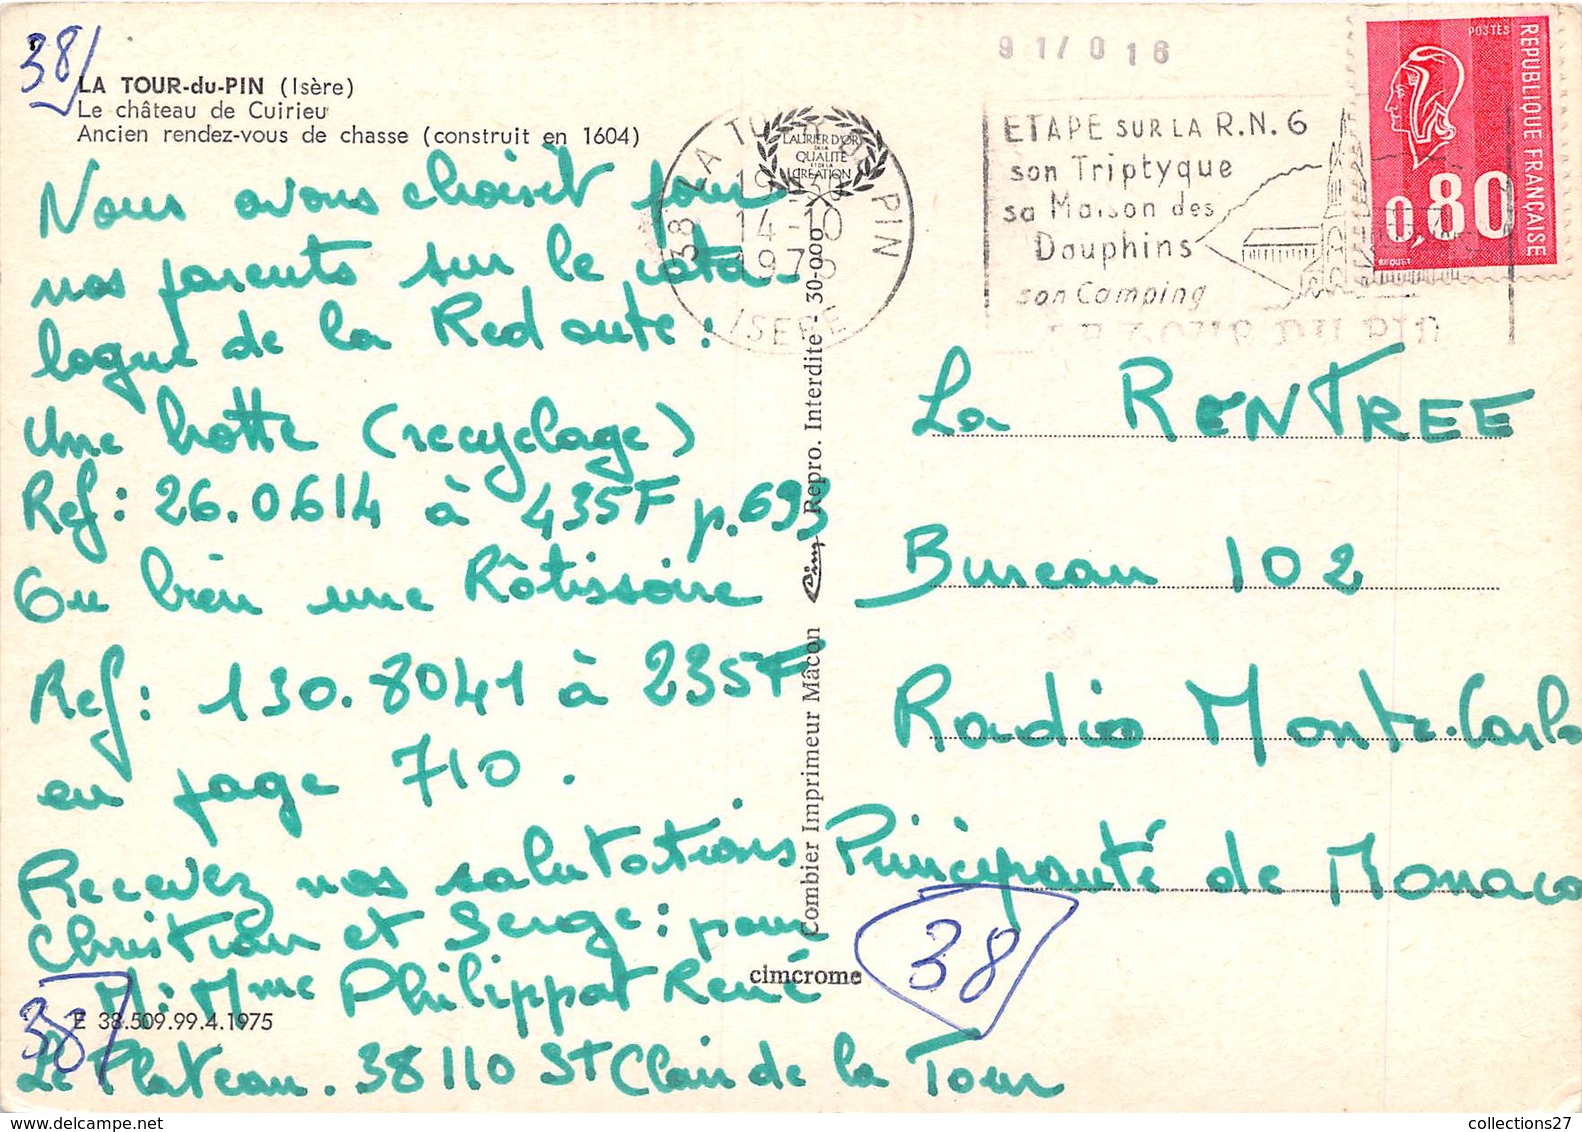 38
LA TOUR-du-PIN (Isère)
Le château de Cuirieu
Ancien rendez-vous de chasse (construit en 1604)
Nous avons choisit pour
nos parents sur le cata-
logue de la Redoute :
Une hotte (recyclage)
Ref : 26.0614 à 435F p.693
Ou bien une Rôtissoire
Ref : 130.8041 à 235F
en page 710.
Recevez nos salutations
Christian et Serge : pour
M. Mme Philippat René
Le Plateau. 38110 St Clair de la Tour
38
E 38.509.99.4.1975
LAURIER D'OR
DE LA
QUALITÉ
ET DE LA
CRÉATION
38 LA TOUR DU PIN
14-10
ISERE
Combier Imprimeur Mâcon Cim Repro. Interdite - 30-000
cimcrome
91/016
ETAPE SUR LA R.N. 6
son Triptyque
sa Maison des
Dauphins
son Camping
LA TOUR DU PIN
POSTES
REPUBLIQUE FRANÇAISE
0,80
BEQUET
La RENTREE
Bureau 102
Radio Monte-Carlo
Principauté de Monaco
38
collections27